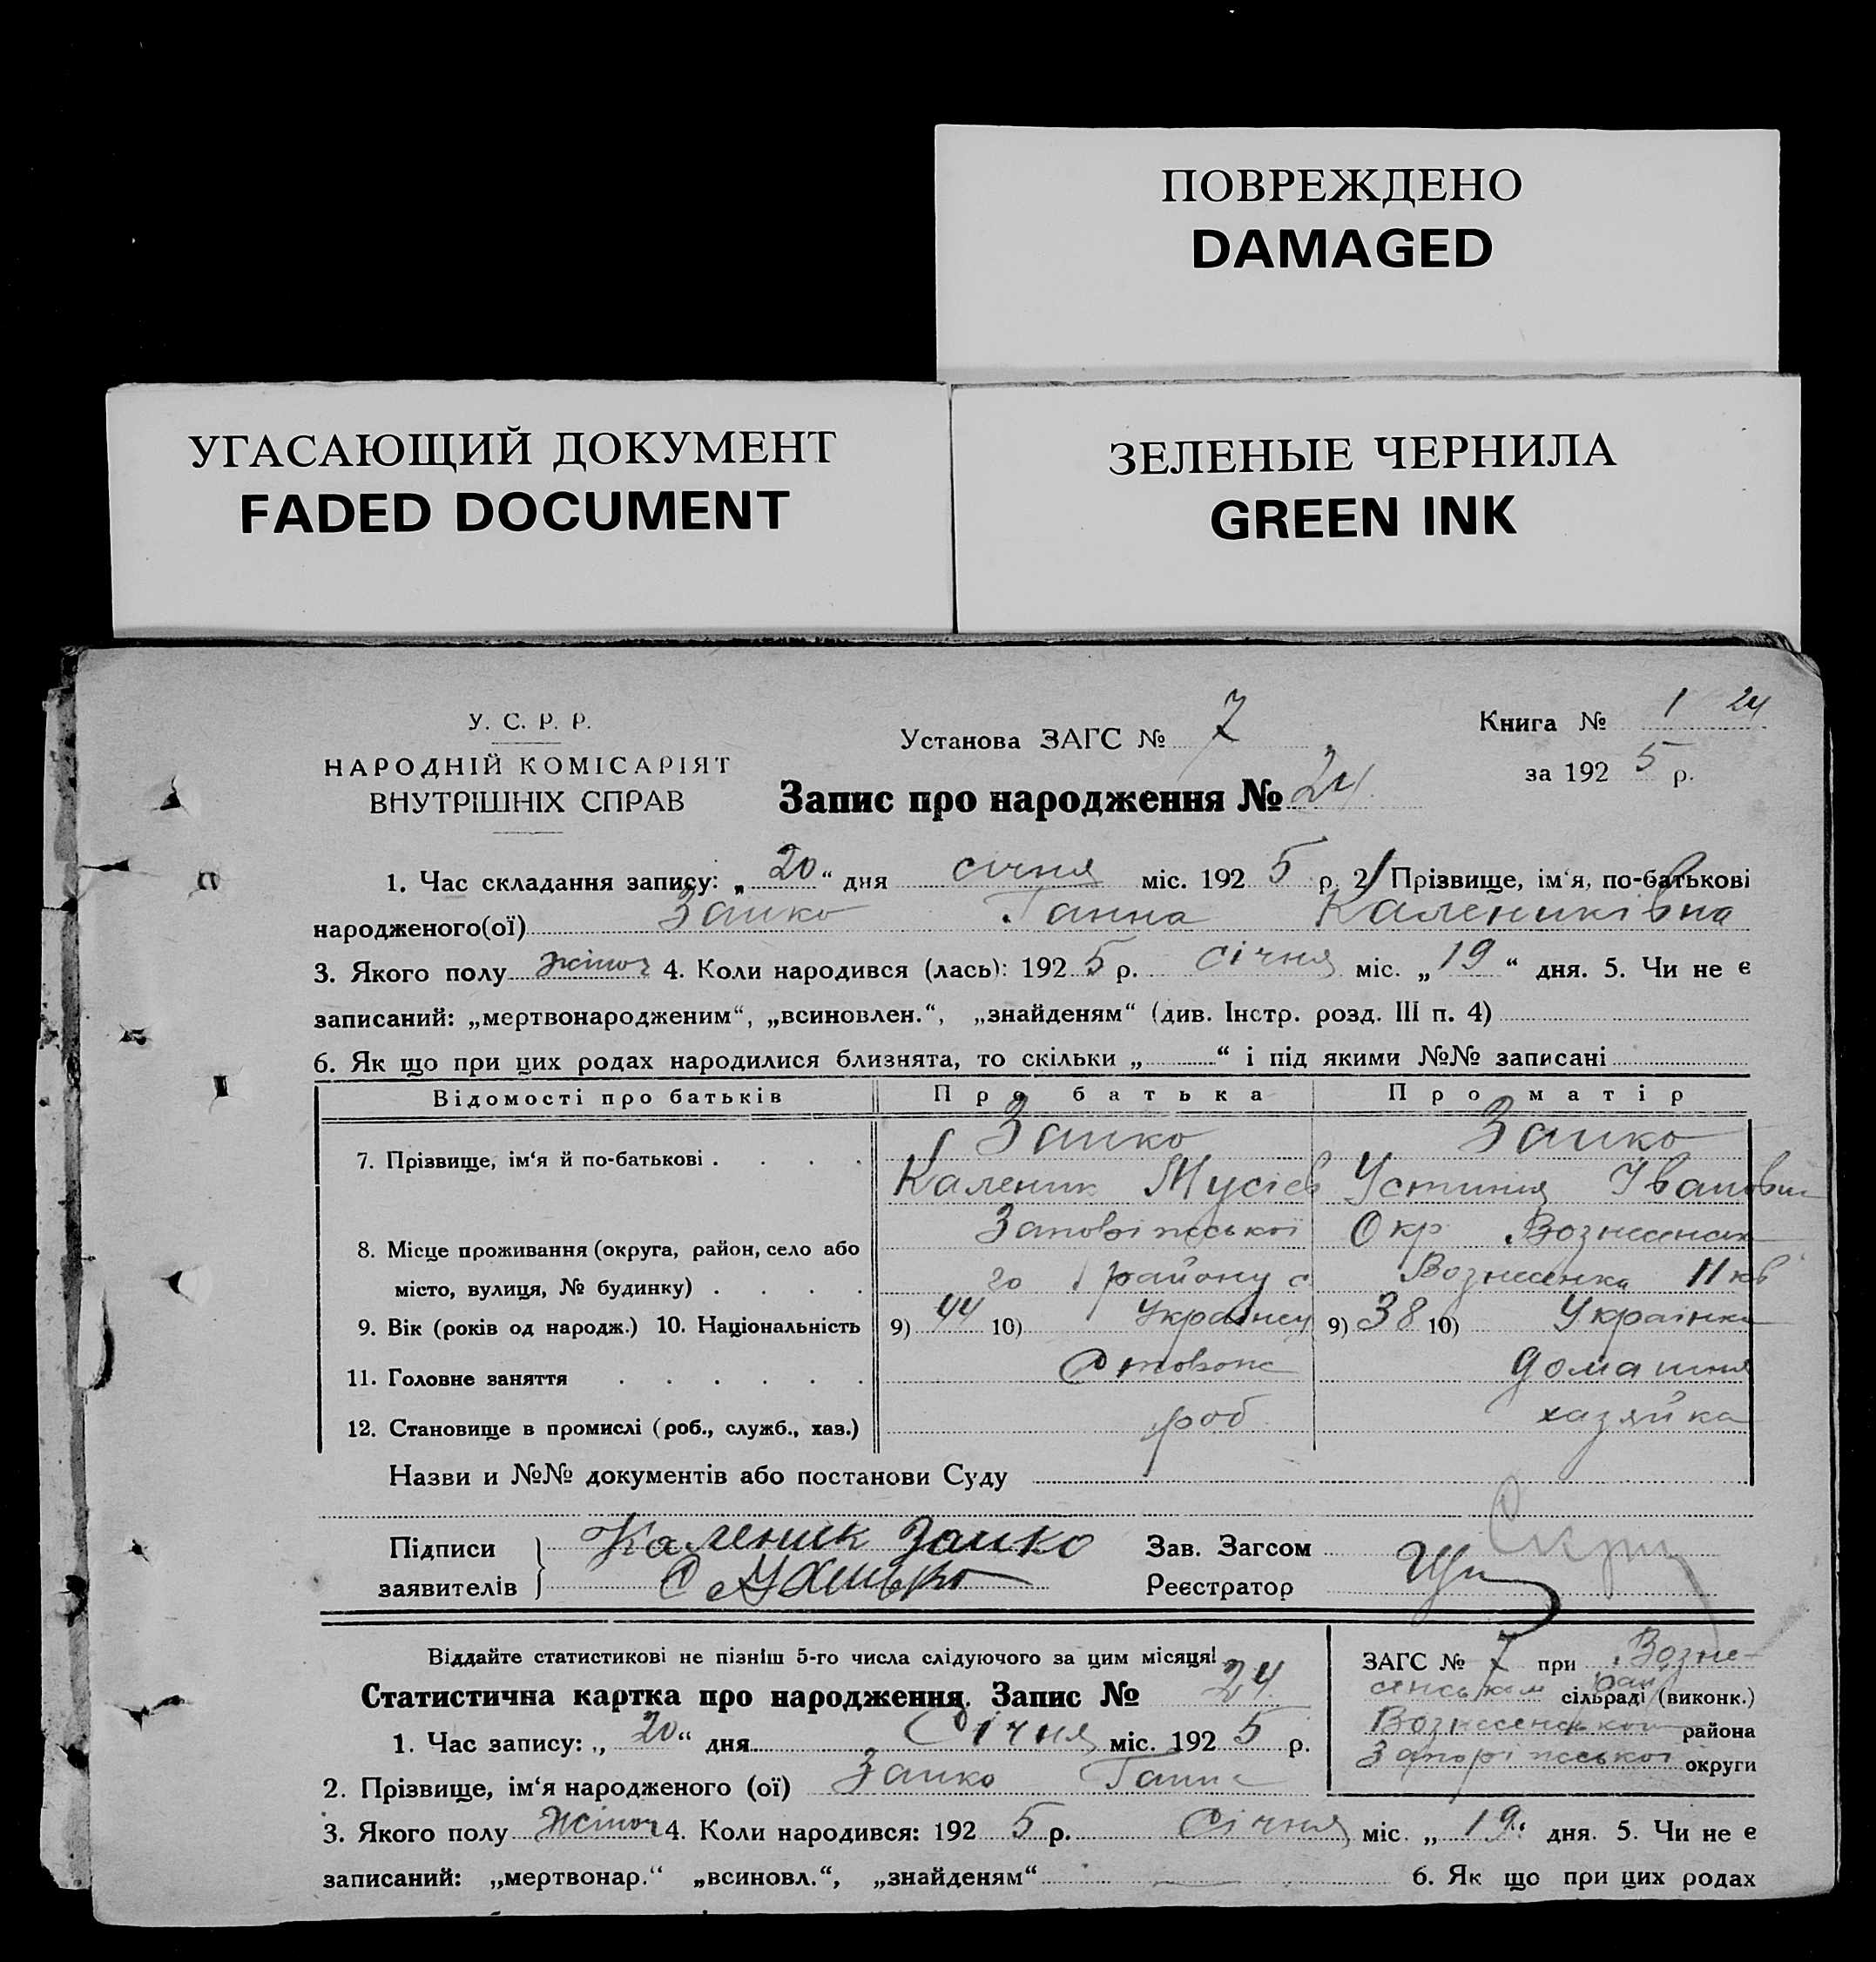 ПОВРЕЖДЕНО
DAMAGED
УГАСАЮЩИЙ ДОКУМЕНТ
FADED DOCUMENT
ЗЕЛЕНЫЕ ЧЕРНИЛА
GREEN INK
У. С. Р. Р.
НАРОДНІЙ КОМІСАРІЯТ
ВНУТРІШНІХ СПРАВ
Установа ЗАГС № 7
Книга № 1 24
за 192 5 р.
Запис про народження № 24
1. Час складання запису: „ 20 “ дня січня міс. 192 5 р. 2. Прізвище, ім‘я, по-батькові
народженого(ої) Заико Ганна Калениківна
3. Якого полу жіноч 4. Коли народився (лась): 192 5 р. січня міс. „ 19 “ дня. 5. Чи не є
записаний: „мертвонародженим“, „всиновлен.“, „знайденям“ (див. Інстр. розд. III п. 4)
6. Як що при цих родах народилися близнята, то скільки „ “ і під якими №№ записані
Відомості про батьків Про батька Про матір
7. Прізвище, ім‘я й по-батькові Заико Заико
Каленик Мусіев Устиния Івановн
8. Місце проживання (округа, район, село або Запоріжської Окр Вознесенск
місто, вулиця, № будинку) го району с Вознесенка 11 кв
9. Вік (років од народж.) 10. Національність 9) 44 10) Українец 9) 38 10) Українка
11. Головне заняття домашня
12. Становище в промислі (роб., служб., хаз.) роб хазяйка
Назви и №№ документів або постанови Суду
Підписи
заявителів
Каленик Заико
Зав. Загсом
Реєстратор
Віддайте статистикові не пізніш 5-го числа слідуючого за цим місяця!
Статистична картка про народження. Запис № 24
1. Час запису: „ 20 “ дня Січня міс. 192 5 р.
ЗАГС № 7 при Возне-
сенськам рай сільраді (виконк.)
Вознесенского района
Запоріжської округи
2. Прізвище, ім‘я народженого (ої) Заико Ганна
3. Якого полу жіноч 4. Коли народився: 192 5 р. Січня міс. „ 19 “ дня. 5. Чи не є
записаний: „мертвонар.“ „всиновл.“, „знайденям“ 6. Як що при цих родах